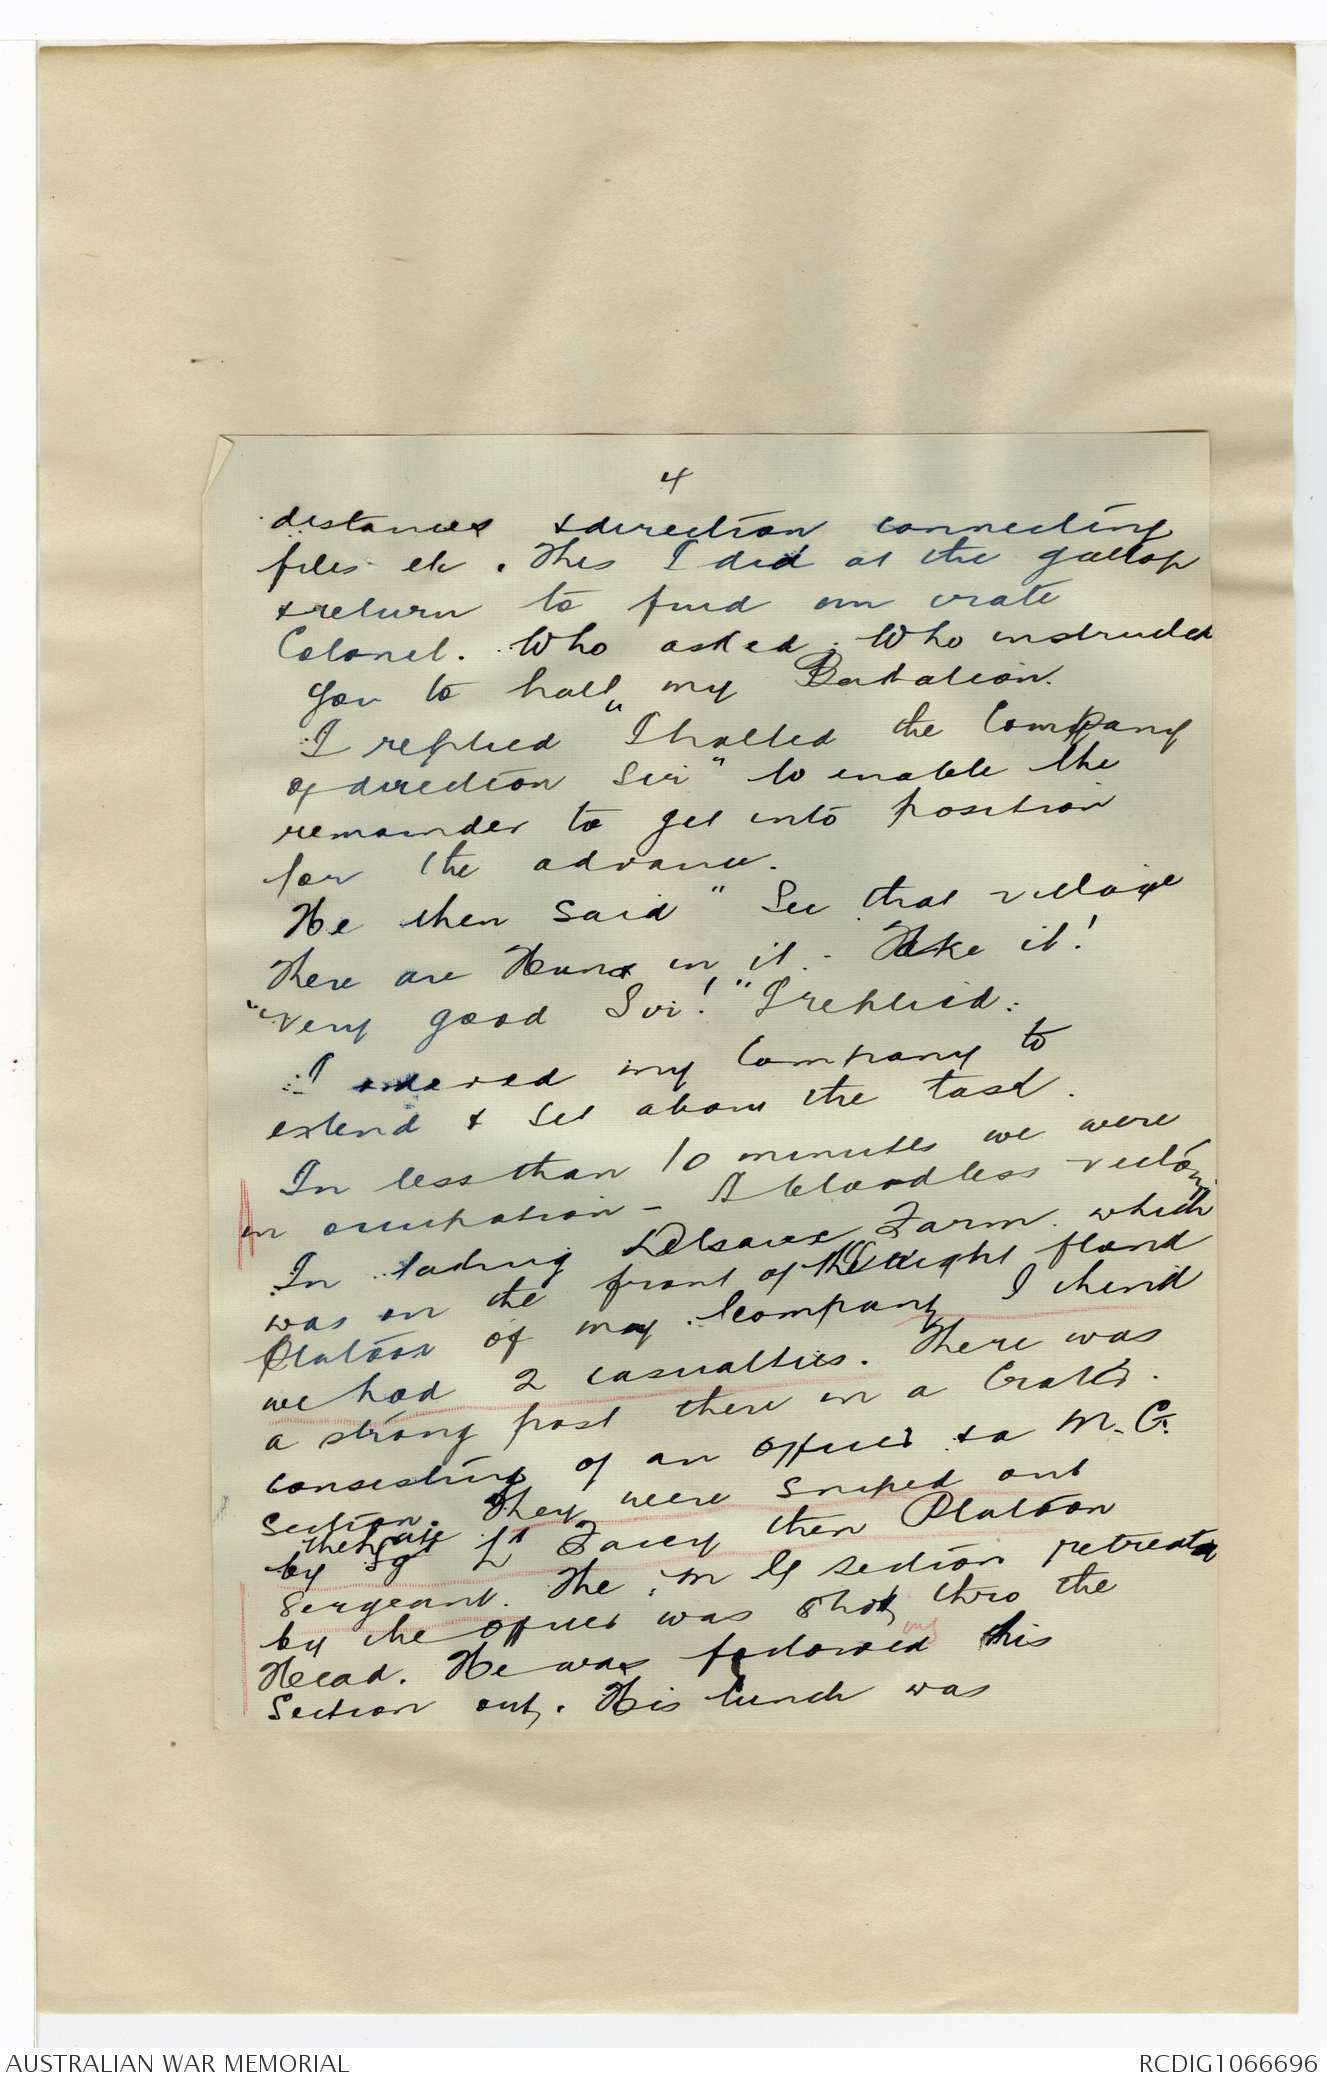 4
distances & direction connecting
files etc. This I did at the gallop
& return to find an irate
Colonel. Who asked. Who instructed
you to halt my Battalion.
I replied "I halted the Company
of direction Sir" to enable the
remainder to get into position
for the advance.
He then said " See that village
There are Huns in it - Take it!
"Very good Sir!" I replied.
I ordered my Company to
extend & set about the task.
In less than 10 minutes we were
in occupation - A bloodless victory
In taking Delsaux Farm which
was on the front of the right flank
Platoon of my Company I think
we had 2 casualties. There was
a strong post there in a Crater.
consisting of an officer & a M.G.
Section. They were sniped out
by Lt Facey then Platoon
Sergeant. The M G section retreated
by the officer was shot thro the
Head. He was followed his
Section out. His lunch was
AUSTRALIAN WAR MEMORIAL
RCDIG1066696